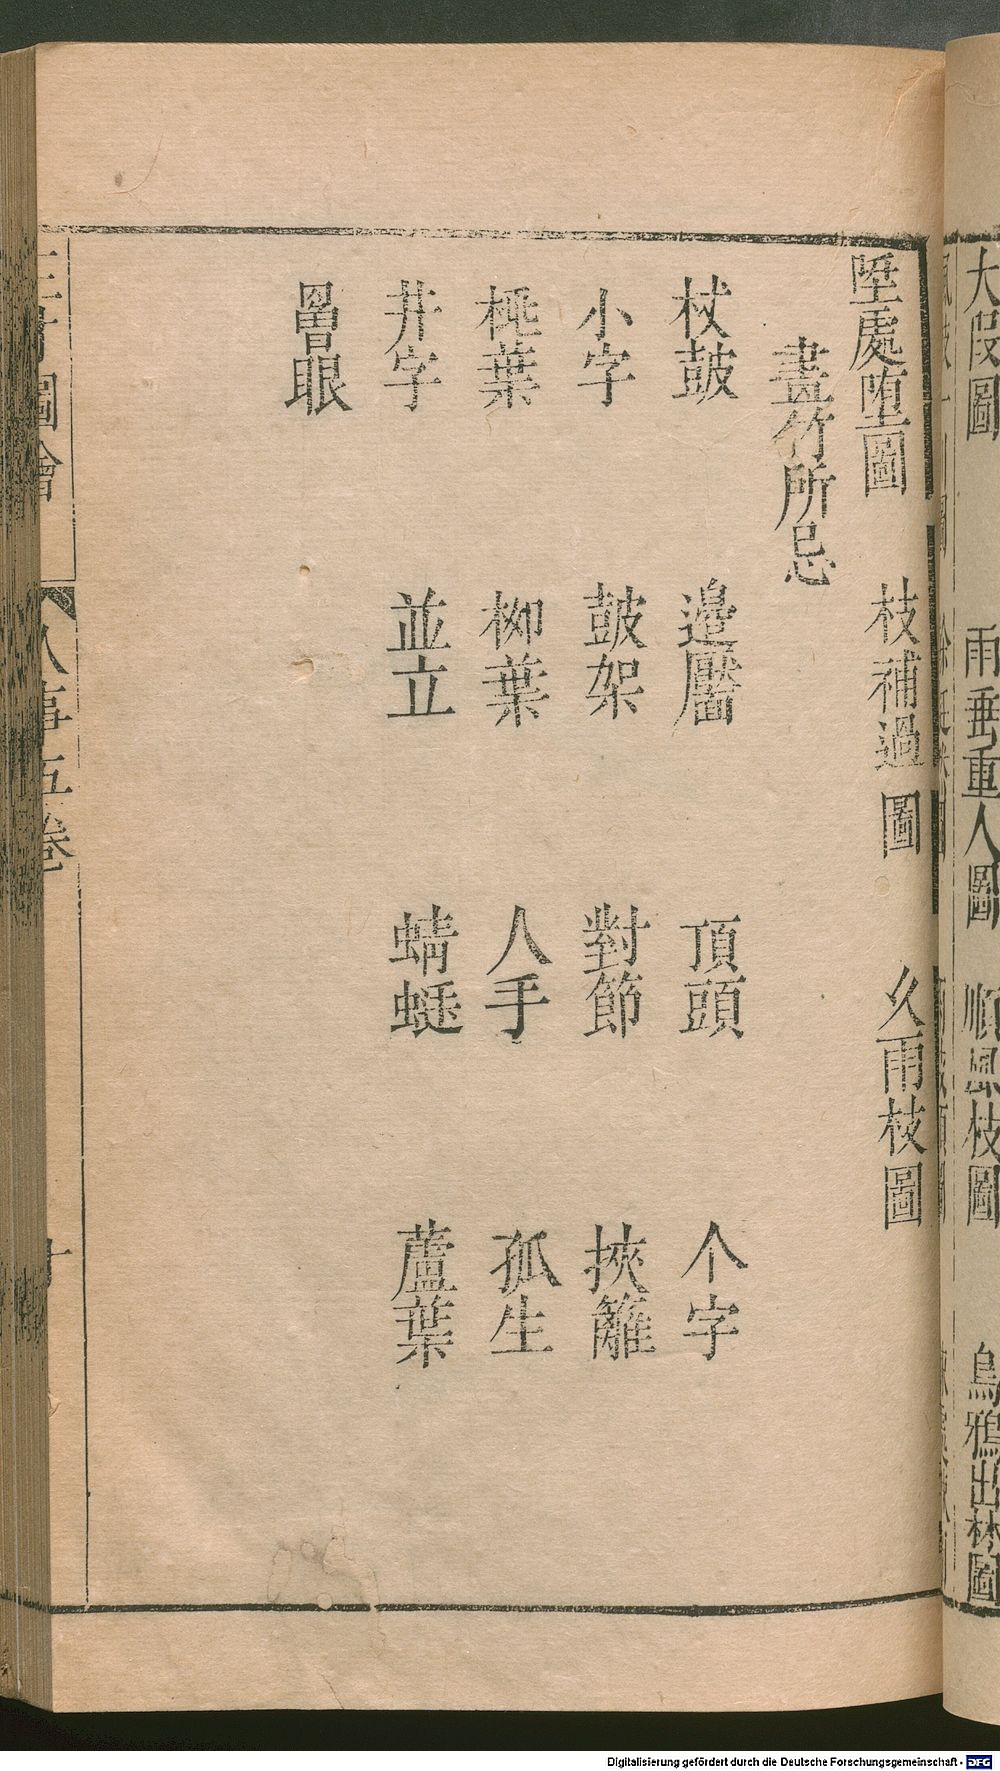 大假圖 雨垂重人圖 順風枝圖 烏鴉出林圖
堕處堕圖 枝補過圖 久雨枝圖
畫竹所忌
杖鼓 邊壓 頂頭 个字
小字 鼓架 對節 挾籬
桃葉 柳葉 人手 孤生
井字 並立 蜻蜓 蘆葉
罾眼
三才圖會 人事五卷
Digitalisierung gefördert durch die Deutsche Forschungsgemeinschaft - DFG